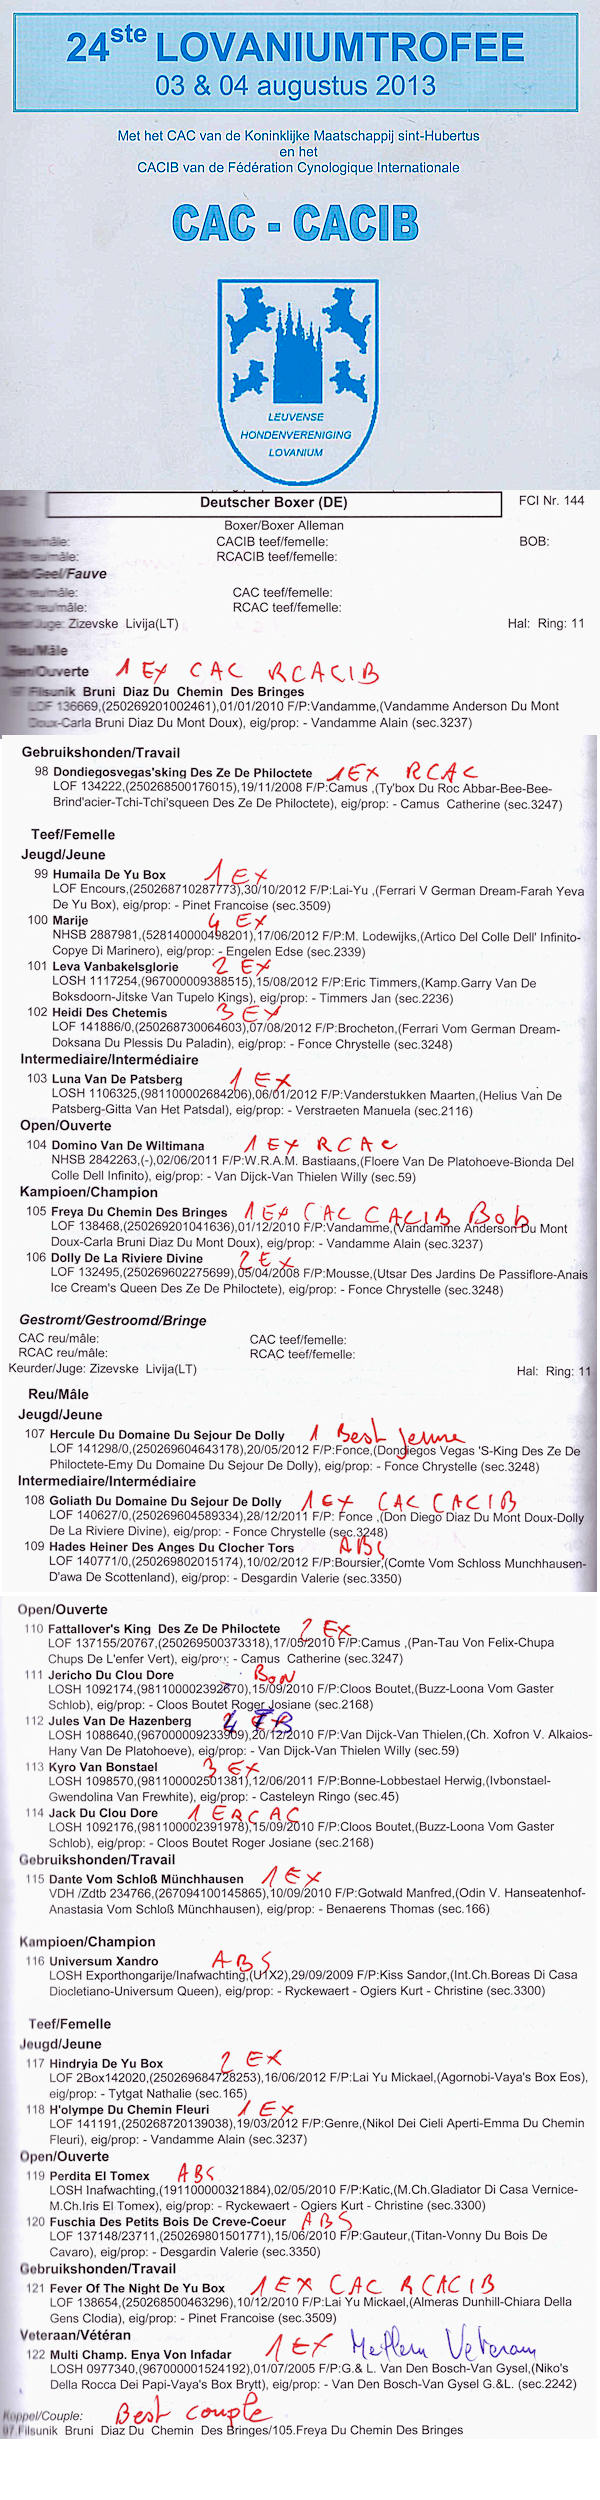 24ste LOVANIUMTROFEE
03 & 04 augustus 2013
Met het CAC van de Koninklijke Maatschappij sint-Hubertus
en het
CACIB van de Fédération Cynologique Internationale
CAC - CACIB
LEUVENSE
HONDENVERENIGING
LOVANIUM
Deutscher Boxer (DE) FCI Nr. 144
Boxer/Boxer Alleman
reu/mâle: CACIB teef/femelle: BOB:
reu/mâle: RCACIB teef/femelle:
Geel/Fauve
reu/mâle: CAC teef/femelle:
reu/mâle: RCAC teef/femelle:
Juge: Zizevske Livija(LT) Hal: Ring: 11
Reu/Mâle
Open/Ouverte 1 EX CAC RCACIB
97 Filsunik Bruni Diaz Du Chemin Des Bringes
LOF 136669,(250269201002461),01/01/2010 F/P:Vandamme,(Vandamme Anderson Du Mont
Doux-Carla Bruni Diaz Du Mont Doux), eig/prop: - Vandamme Alain (sec.3237)
Gebruikshonden/Travail
98 Dondiegosvegas'sking Des Ze De Philoctete 1EX RCAC
LOF 134222,(250268500176015),19/11/2008 F/P:Camus ,(Ty'box Du Roc Abbar-Bee-Bee-
Brind'acier-Tchi-Tchi'squeen Des Ze De Philoctete), eig/prop: - Camus Catherine (sec.3247)
Teef/Femelle
Jeugd/Jeune
99 Humaila De Yu Box 1 EX
LOF Encours,(25026871028773),30/10/2012 F/P:Lai-Yu ,(Ferrari V German Dream-Farah Yeva
De Yu Box), eig/prop: - Pinet Francoise (sec.3509)
100 Marije 4 EX
NHSB 2887981,(528140000498201),17/06/2012 F/P:M. Lodewijks,(Artico Del Colle Dell' Infinito-
Copye Di Marinero), eig/prop: - Engelen Edse (sec.2339)
101 Leva Vanbakelsglorie 2 EX
LOSH 1117254,(967000009388515),15/08/2012 F/P:Eric Timmers,(Kamp.Garry Van De
Boksdoorn-Jitske Van Tupelo Kings), eig/prop: - Timmers Jan (sec.2236)
102 Heidi Des Chetemis 3 EX
LOF 141886/0,(250268730064603),07/08/2012 F/P:Brocheton,(Ferrari Vom German Dream-
Doksana Du Plessis Du Paladin), eig/prop: - Fonce Chrystelle (sec.3248)
Intermediaire/Intermédiaire
103 Luna Van De Patsberg 1 EX
LOSH 1106325,(981100002684206),06/01/2012 F/P:Vanderstukken Maarten,(Helius Van De
Patsberg-Gitta Van Het Patsdal), eig/prop: - Verstraeten Manuela (sec.2116)
Open/Ouverte
104 Domino Van De Wiltimana 1 EX RCAC
NHSB 2842263,(-),02/06/2011 F/P:W.R.A.M. Bastiaans,(Floere Van De Platohoeve-Bionda Del
Colle Dell Infinito), eig/prop: - Van Dijck-Van Thielen Willy (sec.59)
Kampioen/Champion
105 Freya Du Chemin Des Bringes 1 EX CAC CACIB Bob
LOF 138468,(250269201041636),01/12/2010 F/P:Vandamme,(Vandamme Anderson Du Mont
Doux-Carla Bruni Diaz Du Mont Doux), eig/prop: - Vandamme Alain (sec.3237)
106 Dolly De La Riviere Divine 2 EX
LOF 132495,(250269602275699),05/04/2008 F/P:Mousse,(Utsar Des Jardins De Passiflore-Anais
Ice Cream's Queen Des Ze De Philoctete), eig/prop: - Fonce Chrystelle (sec.3248)
Gestromt/Gestroomd/Bringe
CAC reu/mâle: CAC teef/femelle:
RCAC reu/mâle: RCAC teef/femelle:
Keurder/Juge: Zizevske Livija(LT) Hal: Ring: 11
Reu/Mâle
Jeugd/Jeune
107 Hercule Du Domaine Du Sejour De Dolly 1 Best Jeune
LOF 141298/0,(250269604643178),20/05/2012 F/P:Fonce,(Dondiegos Vegas 'S-King Des Ze De
Philoctete-Emy Du Domaine Du Sejour De Dolly), eig/prop: - Fonce Chrystelle (sec.3248)
Intermediaire/Intermédiaire
108 Goliath Du Domaine Du Sejour De Dolly 1 EX CAC CACIB
LOF 140627/0,(250269604589334),28/12/2011 F/P: Fonce ,(Don Diego Diaz Du Mont Doux-Dolly
De La Riviere Divine), eig/prop: - Fonce Chrystelle (sec.3248)
109 Hades Heiner Des Anges Du Clocher Tors ABS
LOF 140771/0,(250269802015174),10/02/2012 F/P:Boursier,(Comte Vom Schloss Munchhausen-
D'awa De Scottenland), eig/prop: - Desgardin Valerie (sec.3350)
Open/Ouverte
110 Fattallover's King Des Ze De Philoctete 2 EX
LOF 137155/20767,(250269500373318),17/05/2010 F/P:Camus ,(Pan-Tau Von Felix-Chupa
Chups De L'enfer Vert), eig/prop: - Camus Catherine (sec.3247)
111 Jericho Du Clou Dore BON
LOSH 1092174,(981100002392670),15/09/2010 F/P:Cloos Boutet,(Buzz-Loona Vom Gaster
Schlob), eig/prop: - Cloos Boutet Roger Josiane (sec.2168)
112 Jules Van De Hazenberg 4 TB
LOSH 1088640,(967000009233909),20/12/2010 F/P:Van Dijck-Van Thielen,(Ch. Xofron V. Alkaios-
Hany Van De Platohoeve), eig/prop: - Van Dijck-Van Thielen Willy (sec.59)
113 Kyro Van Bonstael 3 EX
LOSH 1098570,(981100002501381),12/06/2011 F/P:Bonne-Lobbestael Herwig,(Ivbonstael-
Gwendolina Van Frewhite), eig/prop: - Casteleyn Ringo (sec.45)
114 Jack Du Clou Dore 1 E RCAC
LOSH 1092176,(981100002391978),15/09/2010 F/P:Cloos Boutet,(Buzz-Loona Vom Gaster
Schlob), eig/prop: - Cloos Boutet Roger Josiane (sec.2168)
Gebruikshonden/Travail
115 Dante Vom Schloß Münchhausen 1 EX
VDH /Zdtb 234766,(267094100145865),10/09/2010 F/P:Gotwald Manfred,(Odin V. Hanseatenhof-
Anastasia Vom Schloß Münchhausen), eig/prop: - Benaerens Thomas (sec.166)
Kampioen/Champion
116 Universum Xandro ABS
LOSH Exporthongarije/Inafwachting,(U1X2),29/09/2009 F/P:Kiss Sandor,(Int.Ch.Boreas Di Casa
Diocletiano-Universum Queen), eig/prop: - Ryckewaert - Ogiers Kurt - Christine (sec.3300)
Teef/Femelle
Jeugd/Jeune
117 Hindryia De Yu Box 2 EX
LOF 2Box142020,(250269684728253),16/06/2012 F/P:Lai Yu Mickael,(Agornobi-Vaya's Box Eos),
eig/prop: - Tytgat Nathalie (sec.165)
118 H'olympe Du Chemin Fleuri 1 EX
LOF 141191,(250268720139038),19/03/2012 F/P:Genre,(Nikol Dei Cieli Aperti-Emma Du Chemin
Fleuri), eig/prop: - Vandamme Alain (sec.3237)
Open/Ouverte
119 Perdita El Tomex ABS
LOSH Inafwachting,(191100000321884),02/05/2010 F/P:Katic,(M.Ch.Gladiator Di Casa Vernice-
M.Ch.Iris El Tomex), eig/prop: - Ryckewaert - Ogiers Kurt - Christine (sec.3300)
120 Fuschia Des Petits Bois De Creve-Coeur ABS
LOF 137148/23711,(250269801501771),15/06/2010 F/P:Gauteur,(Titan-Vonny Du Bois De
Cavaro), eig/prop: - Desgardin Valerie (sec.3350)
Gebruikshonden/Travail
121 Fever Of The Night De Yu Box 1 EX CAC RCACIB
LOF 138654,(250268500463296),10/12/2010 F/P:Lai Yu Mickael,(Almeras Dunhill-Chiara Della
Gens Clodia), eig/prop: - Pinet Francoise (sec.3509)
Veteraan/Vétéran
122 Multi Champ. Enya Von Infadar 1 EX Veteran
LOSH 0977340,(967000001524192),01/07/2005 F/P:G.& L. Van Den Bosch-Van Gysel,(Niko's
Della Rocca Dei Papi-Vaya's Box Brytt), eig/prop: - Van Den Bosch-Van Gysel G.&L. (sec.2242)
Koppel/Couple: Best couple
97.Filsunik Bruni Diaz Du Chemin Des Bringes/105.Freya Du Chemin Des Bringes